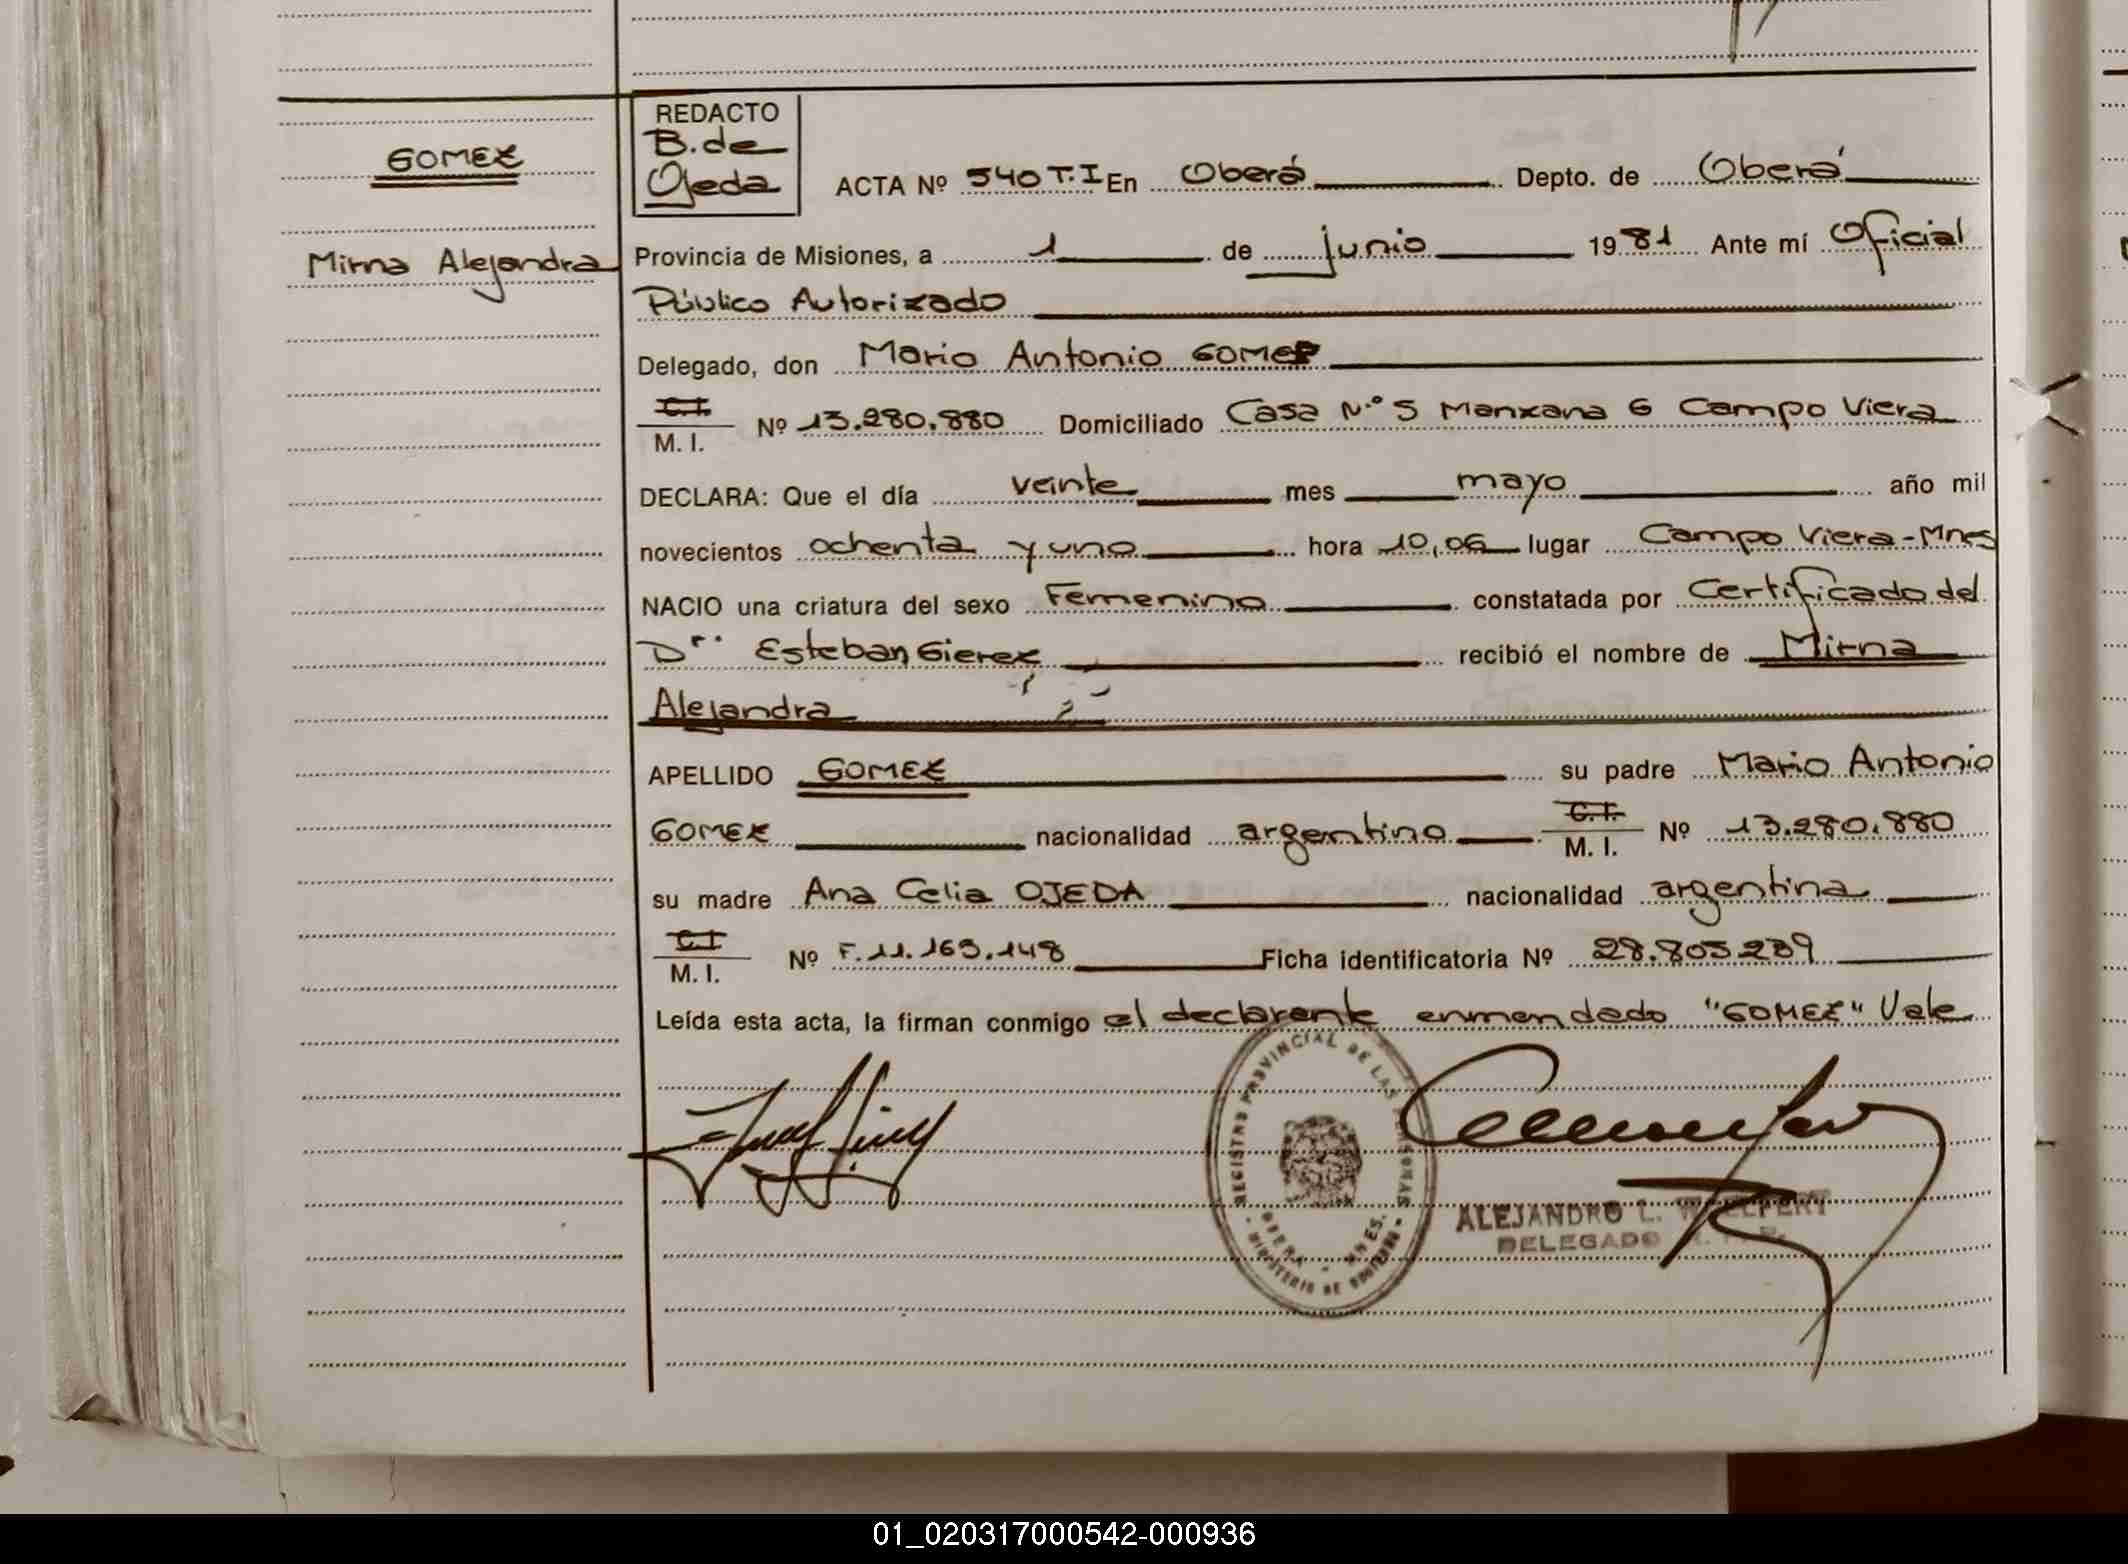 GOMEZ
Mirna Alejandra
REDACTO
B. de
Ojeda
ACTA Nº 540 T.I En Oberá Depto. de Oberá
Provincia de Misiones, a 1 de junio 1981 Ante mí Oficial
Público Autorizado
Delegado, don Mario Antonio GOMEZ
C.I.
M. I. Nº 13.280.880 Domiciliado Casa N.º 5 Manzana 6 Campo Viera
DECLARA: Que el día veinte mes mayo año mil
novecientos ochenta y uno hora 10,06 lugar Campo Viera-Mnes
NACIO una criatura del sexo Femenino constatada por Certificado del
Dr. Esteban Gierez recibió el nombre de Mirna
Alejandra
APELLIDO GOMEZ su padre Mario Antonio
GOMEZ nacionalidad argentino C.I. M. I. Nº 13.280.880
su madre Ana Celia OJEDA nacionalidad argentina
C.I
M. I. Nº F.11.163.148 Ficha identificatoria Nº 28.805.239
Leída esta acta, la firman conmigo el declarante enmendado "GOMEZ" Vale
REGISTRO PROVINCIAL DE LAS PERSONAS
OBERA - MNES.
MINISTERIO DE GOBIERNO
ALEJANDRO L.
DELEGADO
01_020317000542-000936